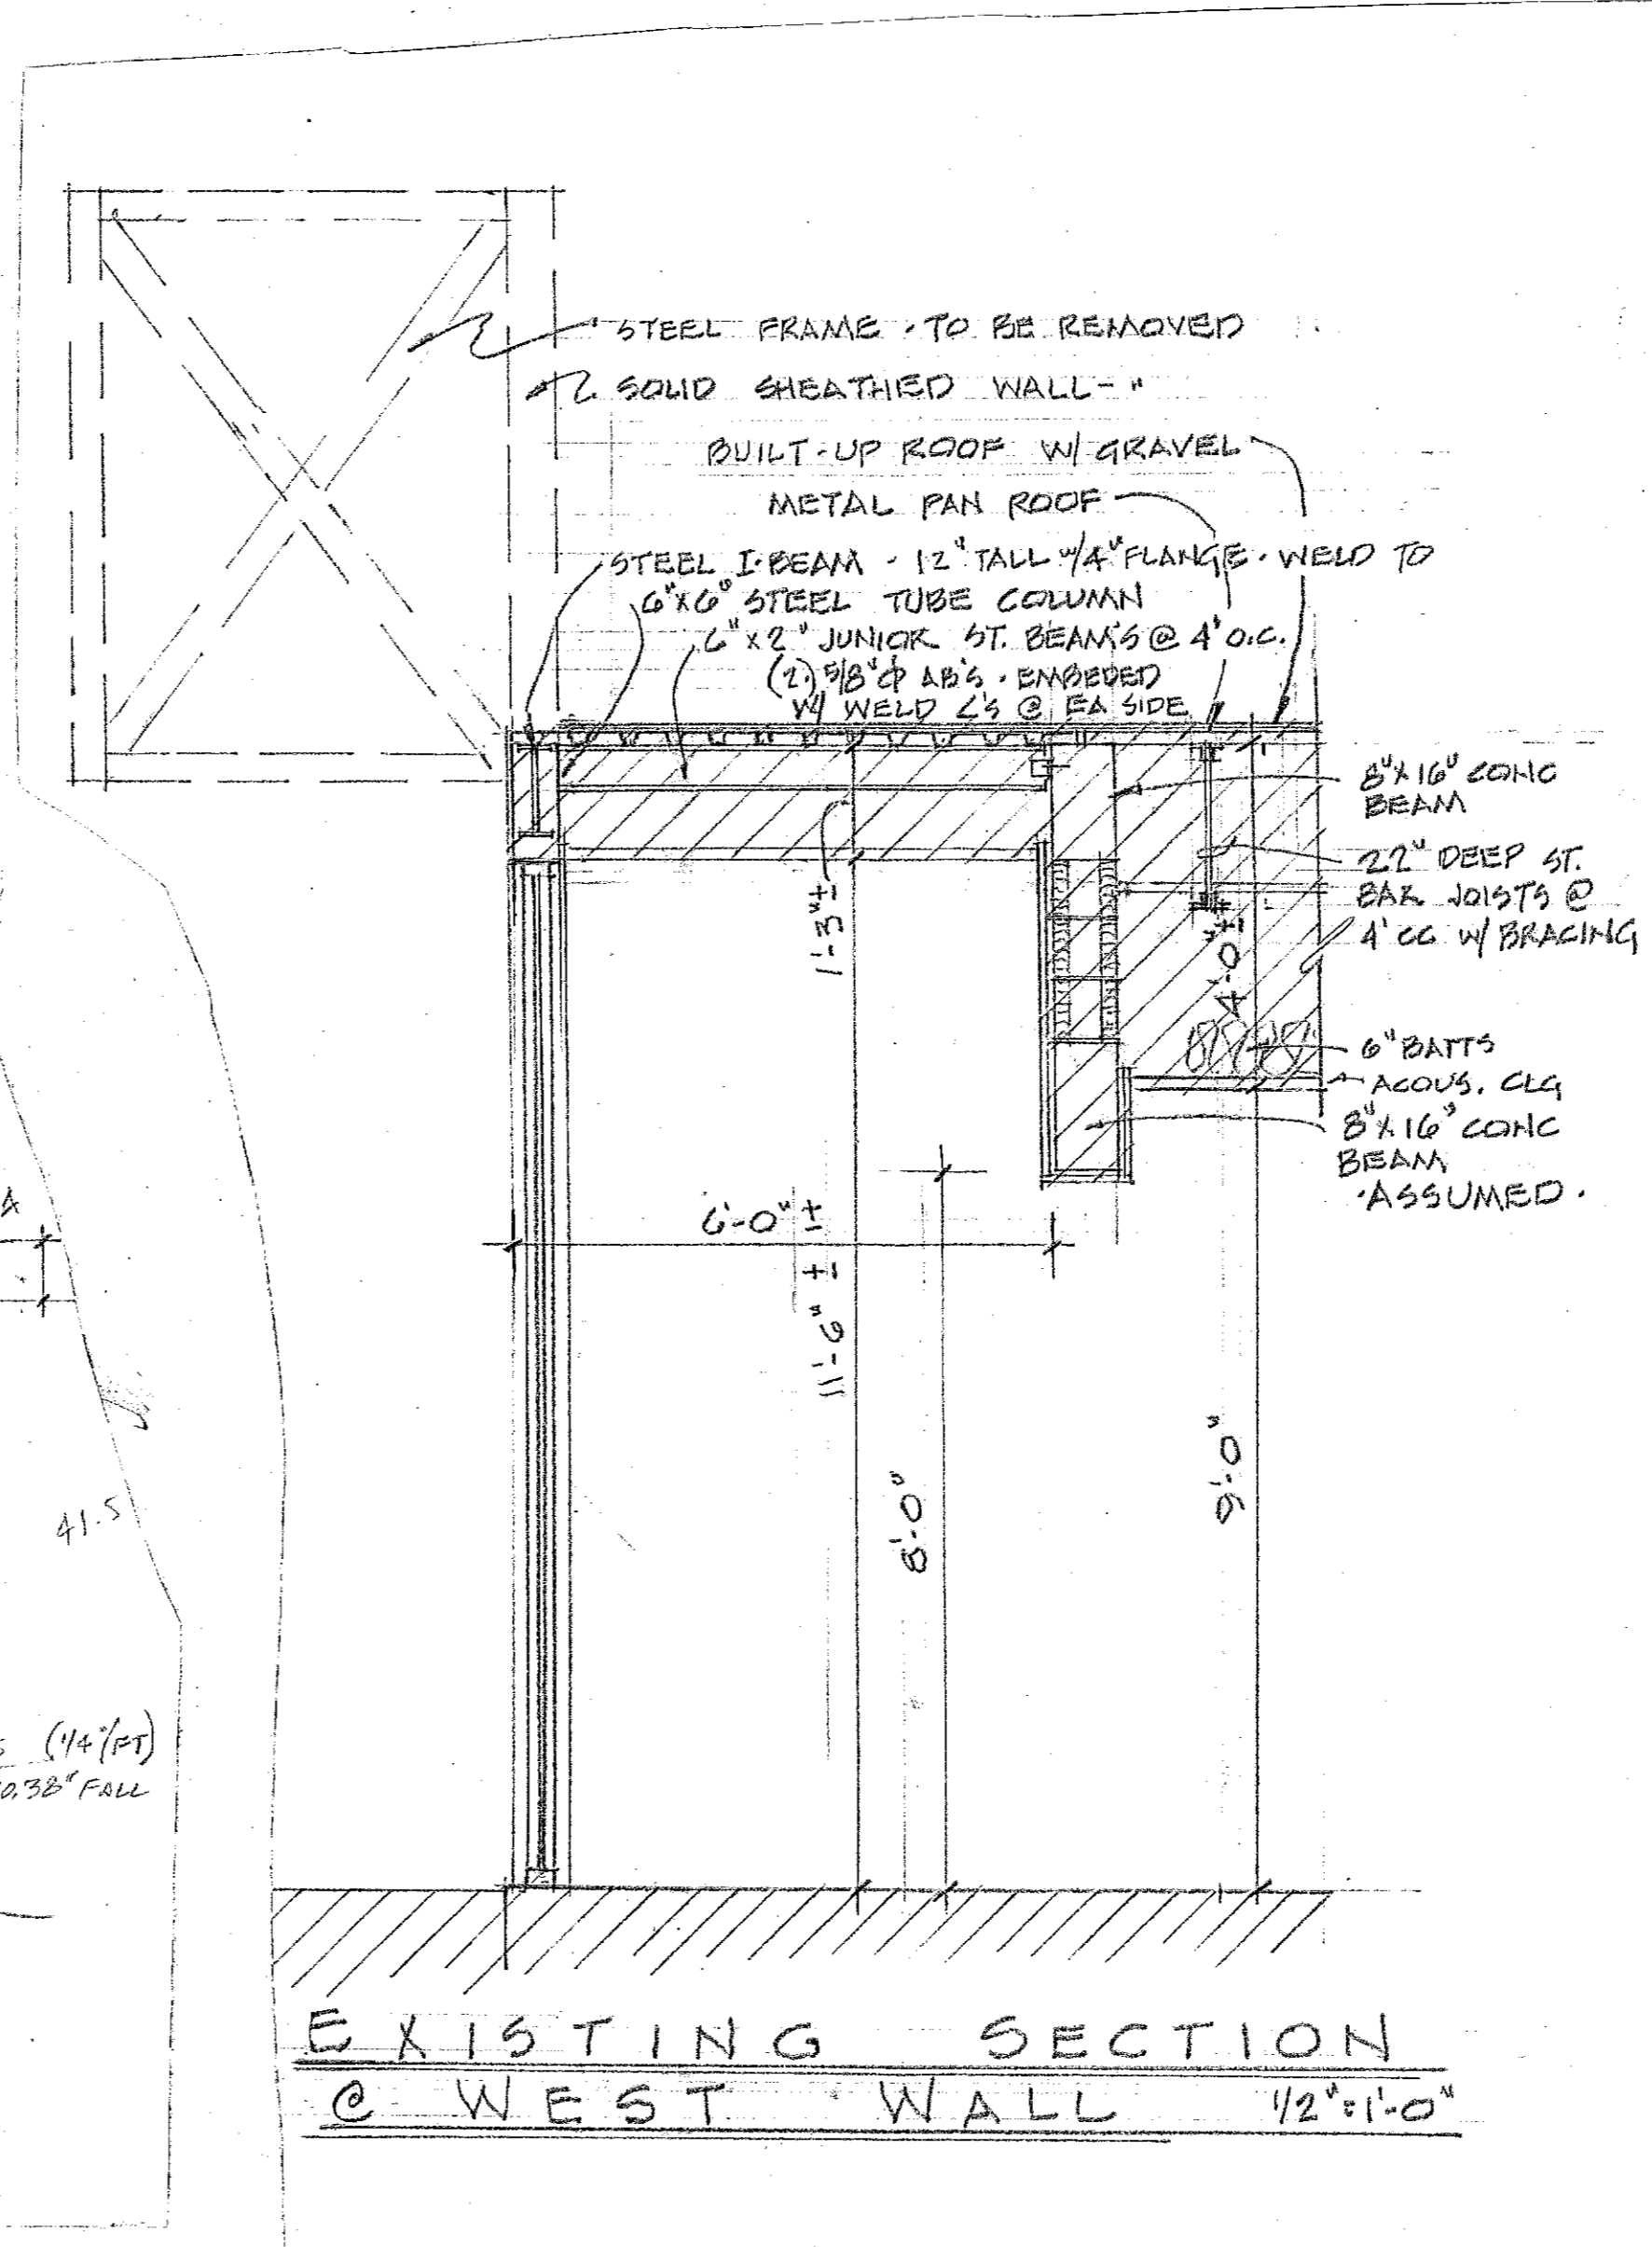 STEEL FRAME · TO BE REMOVED
SOLID SHEATHED WALL - "
BUILT-UP ROOF W/ GRAVEL
METAL PAN ROOF
STEEL I-BEAM - 12" TALL W/4" FLANGE · WELD TO
6"X6" STEEL TUBE COLUMN
6"X2" JUNIOR ST. BEAM'S @ 4' O.C.
(2) 5/8"Φ AB'S · EMBEDED
W/ WELD L'S @ EA SIDE
8"X16" CONC
BEAM
22" DEEP ST.
BAR JOISTS @
4' CC W/ BRACING
1'-3"±
4'-0"±
6" BATTS
ACOUS. CLG
8"X16" CONC
BEAM
·ASSUMED·
6'-0" ±
11'-6" ±
8'-0"
9'-0"
A
41.5
(1/4"/FT)
0.38" FALL
EXISTING SECTION
@ WEST WALL 1/2"=1'-0"